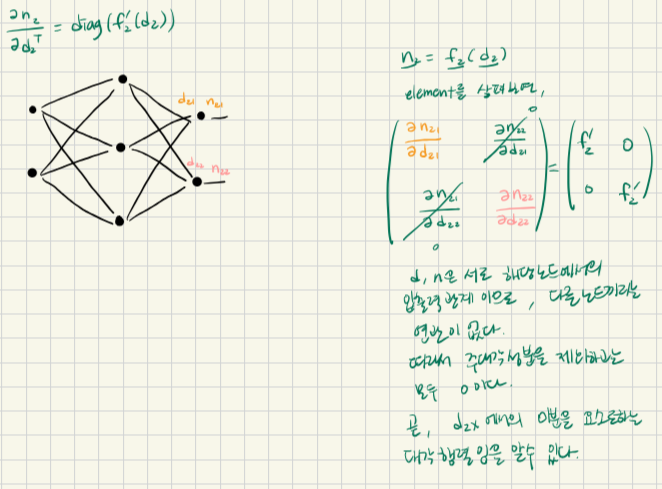 ∂n₂/∂d₂ᵀ = diag(f₂′(d₂))
d₂₁ n₂₁
d₂₂ n₂₂
n₂ = f₂(d₂)
element를 살펴보면,
( ∂n₂₁/∂d₂₁ ∂n₂₂/∂d₂₁ 0 ) = ( f₂′ 0 )
( ∂n₂₁/∂d₂₂ 0 ∂n₂₂/∂d₂₂ ) ( 0 f₂′ )
d, n은 서로 해당노드에서의
입출력 관계 이므로, 다른노드끼리는
연관이 없다.
따라서 주대각성분을 제외하고는
모두 0이다.
곧, d₂ₓ 에서의 미분을 요소로하는
대각행렬 임을 알수 있다.